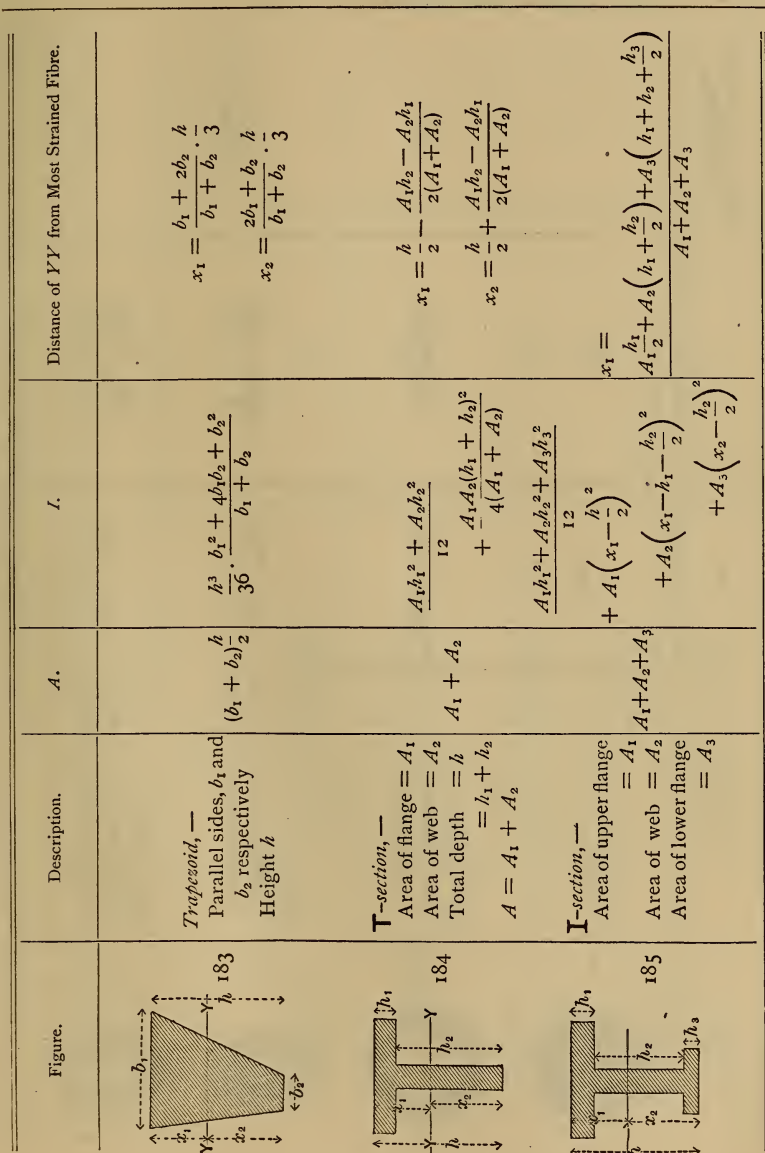 Figure. Description. A. I. Distance of YY from Most Strained Fibre.
b₁
x₁ x₂ Y Y h
b₂
183
Trapezoid,—
Parallel sides, b₁ and
b₂ respectively
Height h
(b₁ + b₂) h/2
h³/36 · (b₁² + 4b₁b₂ + b₂²)/(b₁ + b₂)
x₁ = (b₁ + 2b₂)/(b₁ + b₂) · h/3
x₂ = (2b₁ + b₂)/(b₁ + b₂) · h/3
h₁
x₁ h₂
Y Y
h x₂
184
T-section,—
Area of flange = A₁
Area of web = A₂
Total depth = h
= h₁ + h₂
A = A₁ + A₂
A₁ + A₂
(A₁h₁² + A₂h₂²)/12
+ A₁A₂(h₁ + h₂)²/4(A₁ + A₂)
x₁ = h/2 − (A₁h₂ − A₂h₁)/2(A₁ + A₂)
x₂ = h/2 + (A₁h₂ − A₂h₁)/2(A₁ + A₂)
h₁
x₁ h₂
h x₂ h₃
185
I-section,—
Area of upper flange
= A₁
Area of web = A₂
Area of lower flange
= A₃
A₁+A₂+A₃
(A₁h₁²+A₂h₂²+A₃h₃²)/12
+ A₁(x₁−h/2)²
+ A₂(x₁−h₁−h₂/2)²
+ A₃(x₂−h₂/2)²
x₁ =
(A₁h₁/2+A₂(h₁+h₂/2)+A₃(h₁+h₂+h₃/2))/(A₁+A₂+A₃)